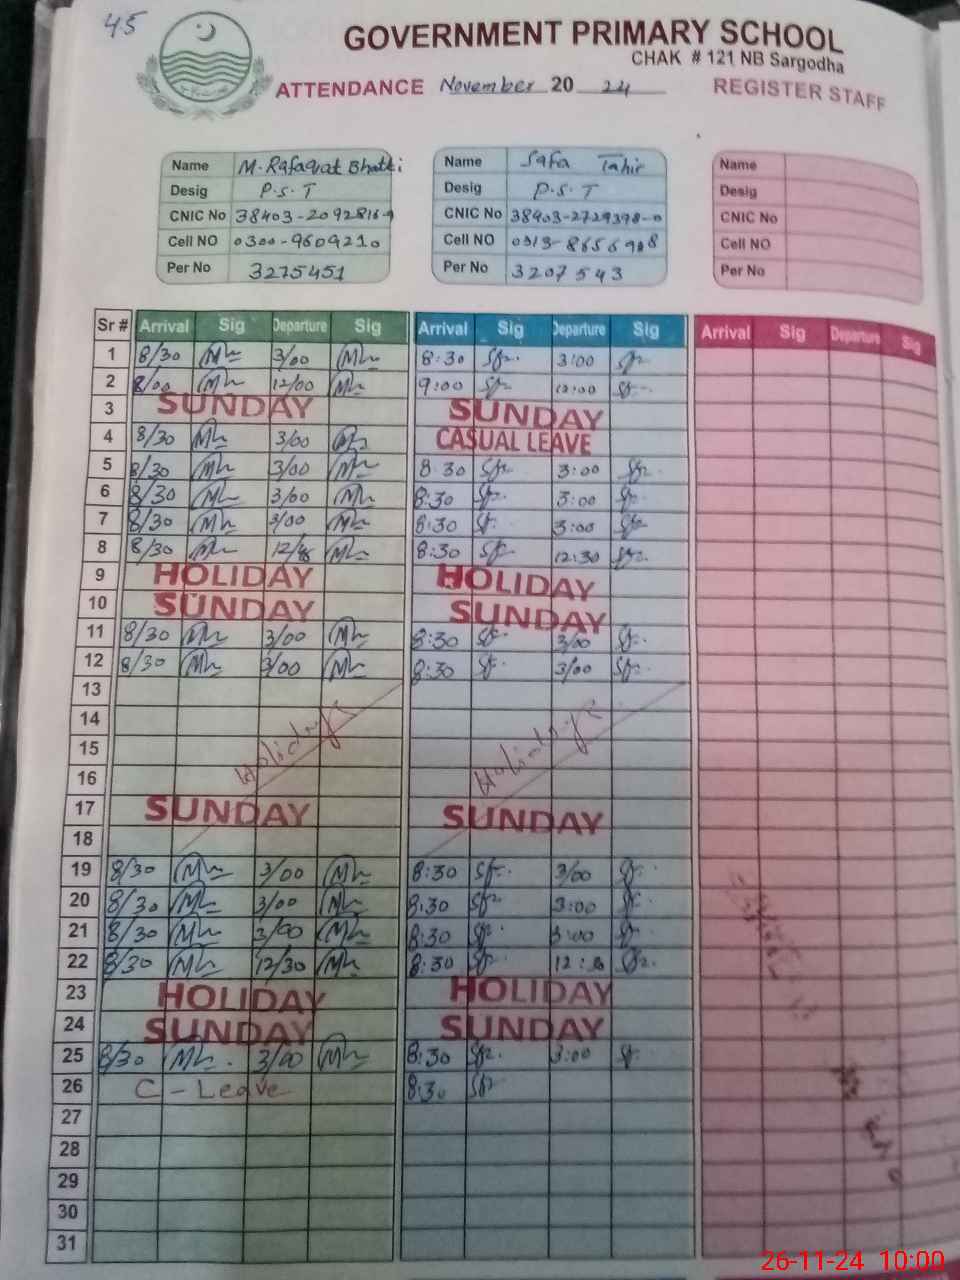 45
GOVERNMENT PRIMARY SCHOOL
CHAK # 121 NB Sargodha
ATTENDANCE November 20 24 REGISTER STAFF
Name M. Rafaqat Bhatti Name Safa Tahir Name
Desig P.S.T Desig P.S.T Desig
CNIC No 38403-2092816-9 CNIC No 38403-2729398-0 CNIC No
Cell NO 0300-9609210 Cell NO 0313-8656908 Cell NO
Per No 3275451 Per No 3207543 Per No
Sr # Arrival Sig Departure Sig Arrival Sig Departure Sig Arrival Sig Departure Sig
1 8/30 3/00 8:30 3:00
2 8/00 12/00 9:00 12:00
3 SUNDAY SUNDAY
4 8/30 3/00 CASUAL LEAVE
5 8/30 3/00 8:30 3:00
6 8/30 3/00 8:30 3:00
7 8/30 3/00 8:30 3:00
8 8/30 8:30 12:30
9 HOLIDAY HOLIDAY
10 SUNDAY SUNDAY
11 8/30 3/00 8:30 3/00
12 8/30 3/00 8:30 3/00
13
14 Holidays Holidays
15
16
17 SUNDAY SUNDAY
18
19 8/30 3/00 8:30 3/00
20 8/30 3/00 8:30 3:00
21 8/30 3/00 8:30 3:00
22 8/30 12/30 8:30 12:30
23 HOLIDAY HOLIDAY
24 SUNDAY SUNDAY
25 8/30 3/00 8:30 3:00
26 C-Leave 8:30
27
28
29
30
31
26-11-24 10:00